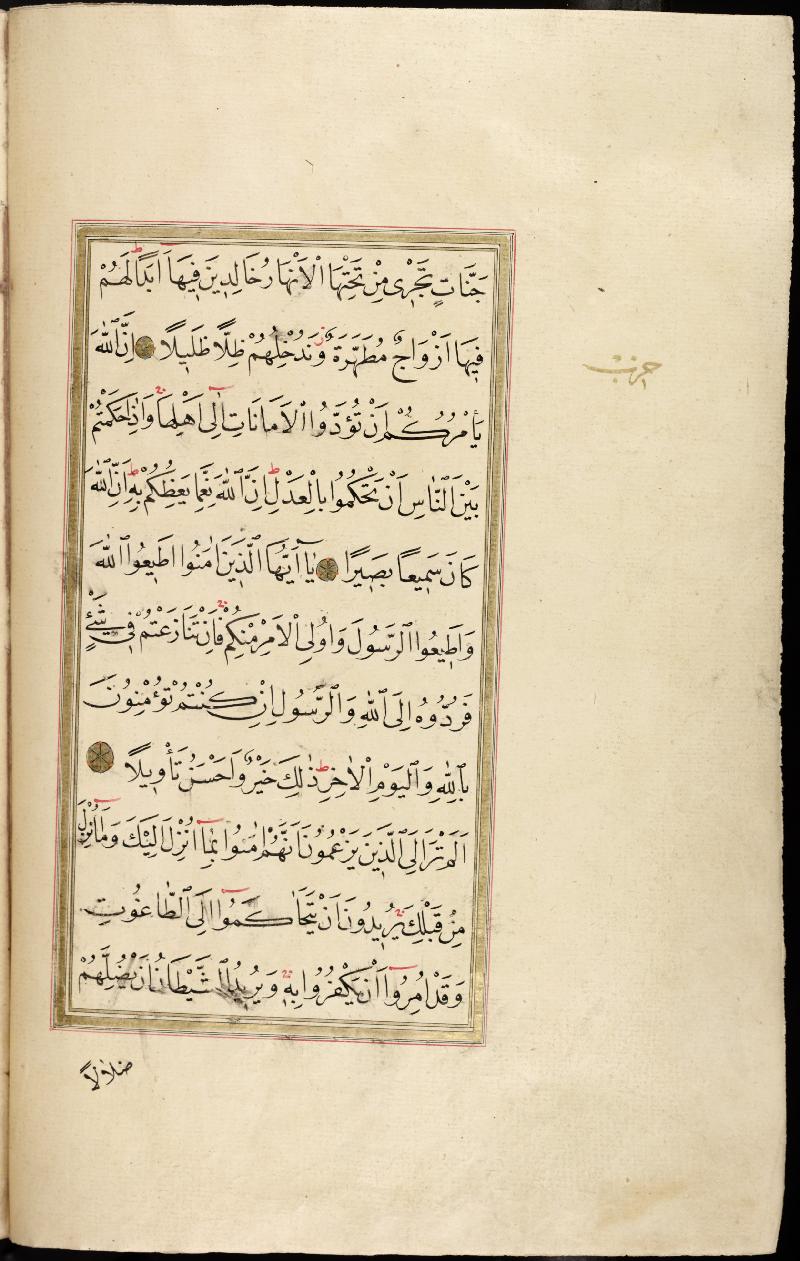 جَنَّاتٍ تَجْرٖى مِنْ تَحْتِهَا الْاَنْهَارُ خَالِدٖينَ فٖيهَٓا اَبَدًاؕ لَهُمْ
فٖيهَٓا اَزْوَاجٌ مُطَهَّرَةٌؗ وَنُدْخِلُهُمْ ظِلًّا ظَلٖيلًا اِنَّ اللّٰهَ
حزب
يَأْمُرُكُمْ اَنْ تُؤَدُّوا الْاَمَانَاتِ اِلٰٓى اَهْلِهَا وَاِذَا حَكَمْتُمْ
بَيْنَ النَّاسِ اَنْ تَحْكُمُوا بِالْعَدْلِؕ اِنَّ اللّٰهَ نِعِمَّا يَعِظُكُمْ بِهٖؕ اِنَّ اللّٰهَ
كَانَ سَمٖيعًا بَصٖيرًا يَٓا اَيُّهَا الَّذٖينَ اٰمَنُوا اَطٖيعُوا اللّٰهَ
وَاَطٖيعُوا الرَّسُولَ وَاُولِى الْاَمْرِ مِنْكُمْ فَاِنْ تَنَازَعْتُمْ فٖى شَيْءٍ
فَرُدُّوهُ اِلَى اللّٰهِ وَالرَّسُولِ اِنْ كُنْتُمْ تُؤْمِنُونَ
بِاللّٰهِ وَالْيَوْمِ الْاٰخِرِؕ ذٰلِكَ خَيْرٌ وَاَحْسَنُ تَأْوٖيلًا
اَلَمْ تَرَ اِلَى الَّذٖينَ يَزْعُمُونَ اَنَّهُمْ اٰمَنُوا بِمَٓا اُنْزِلَ اِلَيْكَ وَمَٓا اُنْزِلَ
مِنْ قَبْلِكَ يُرٖيدُونَ اَنْ يَتَحَاكَمُٓوا اِلَى الطَّاغُوتِ
وَقَدْ اُمِرُٓوا اَنْ يَكْفُرُوا بِهٖ وَيُرٖيدُ الشَّيْطَانُ اَنْ يُضِلَّهُمْ
ضلالاً